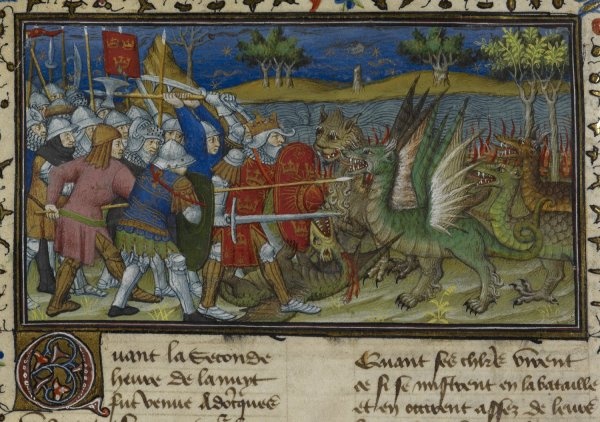 Quant la seconde
heure de la nuyt
fut venue adocques
Quant ses chlrs virent
ce si se mistrent en la bataille
et en occirent assez de leurs